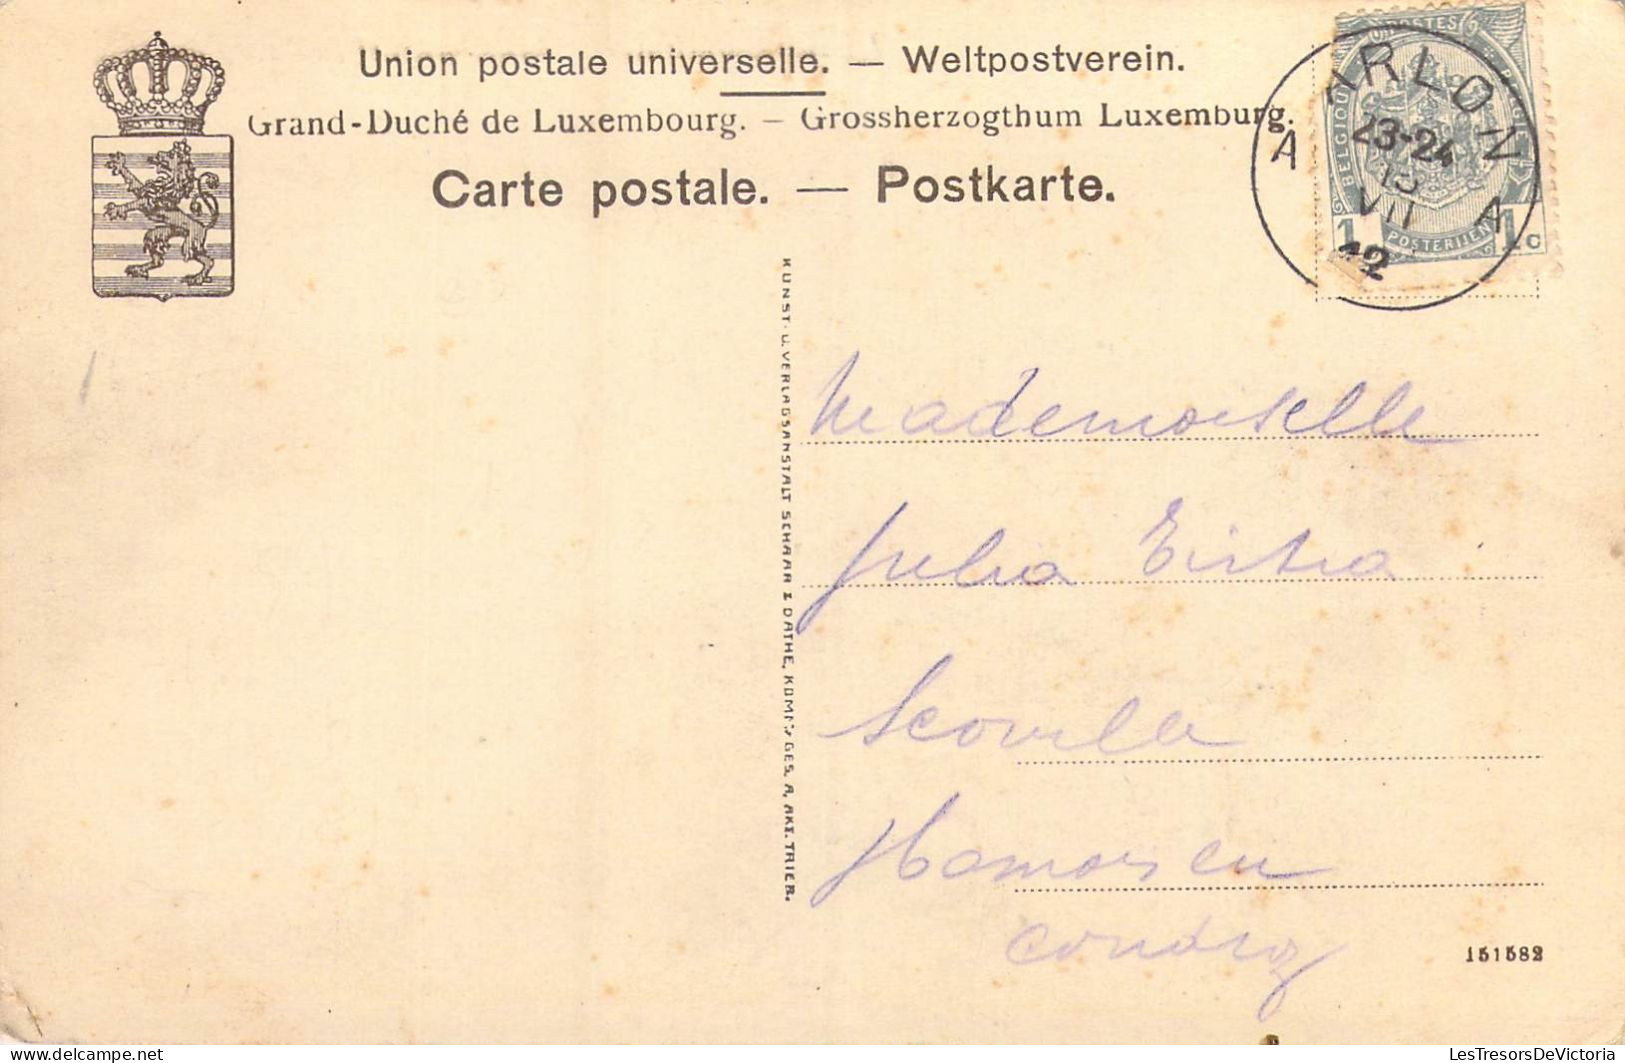 Union postale universelle. — Weltpostverein.
Grand-Duché de Luxembourg. — Grossherzogthum Luxemburg.
Carte postale. — Postkarte.
POSTES
BELGIQUE
1 POSTERIJEN 1c
ARLON
A A
23-24
VII
12
KUNST- U. VERLAGSANSTALT SCHAAR & DATHE, KOMM. GES. A. AKT. TRIER.
Mademoiselle
Julia
Scoville
Hamois en
Condroz
151582
LesTresorsDeVictoria
www.delcampe.net